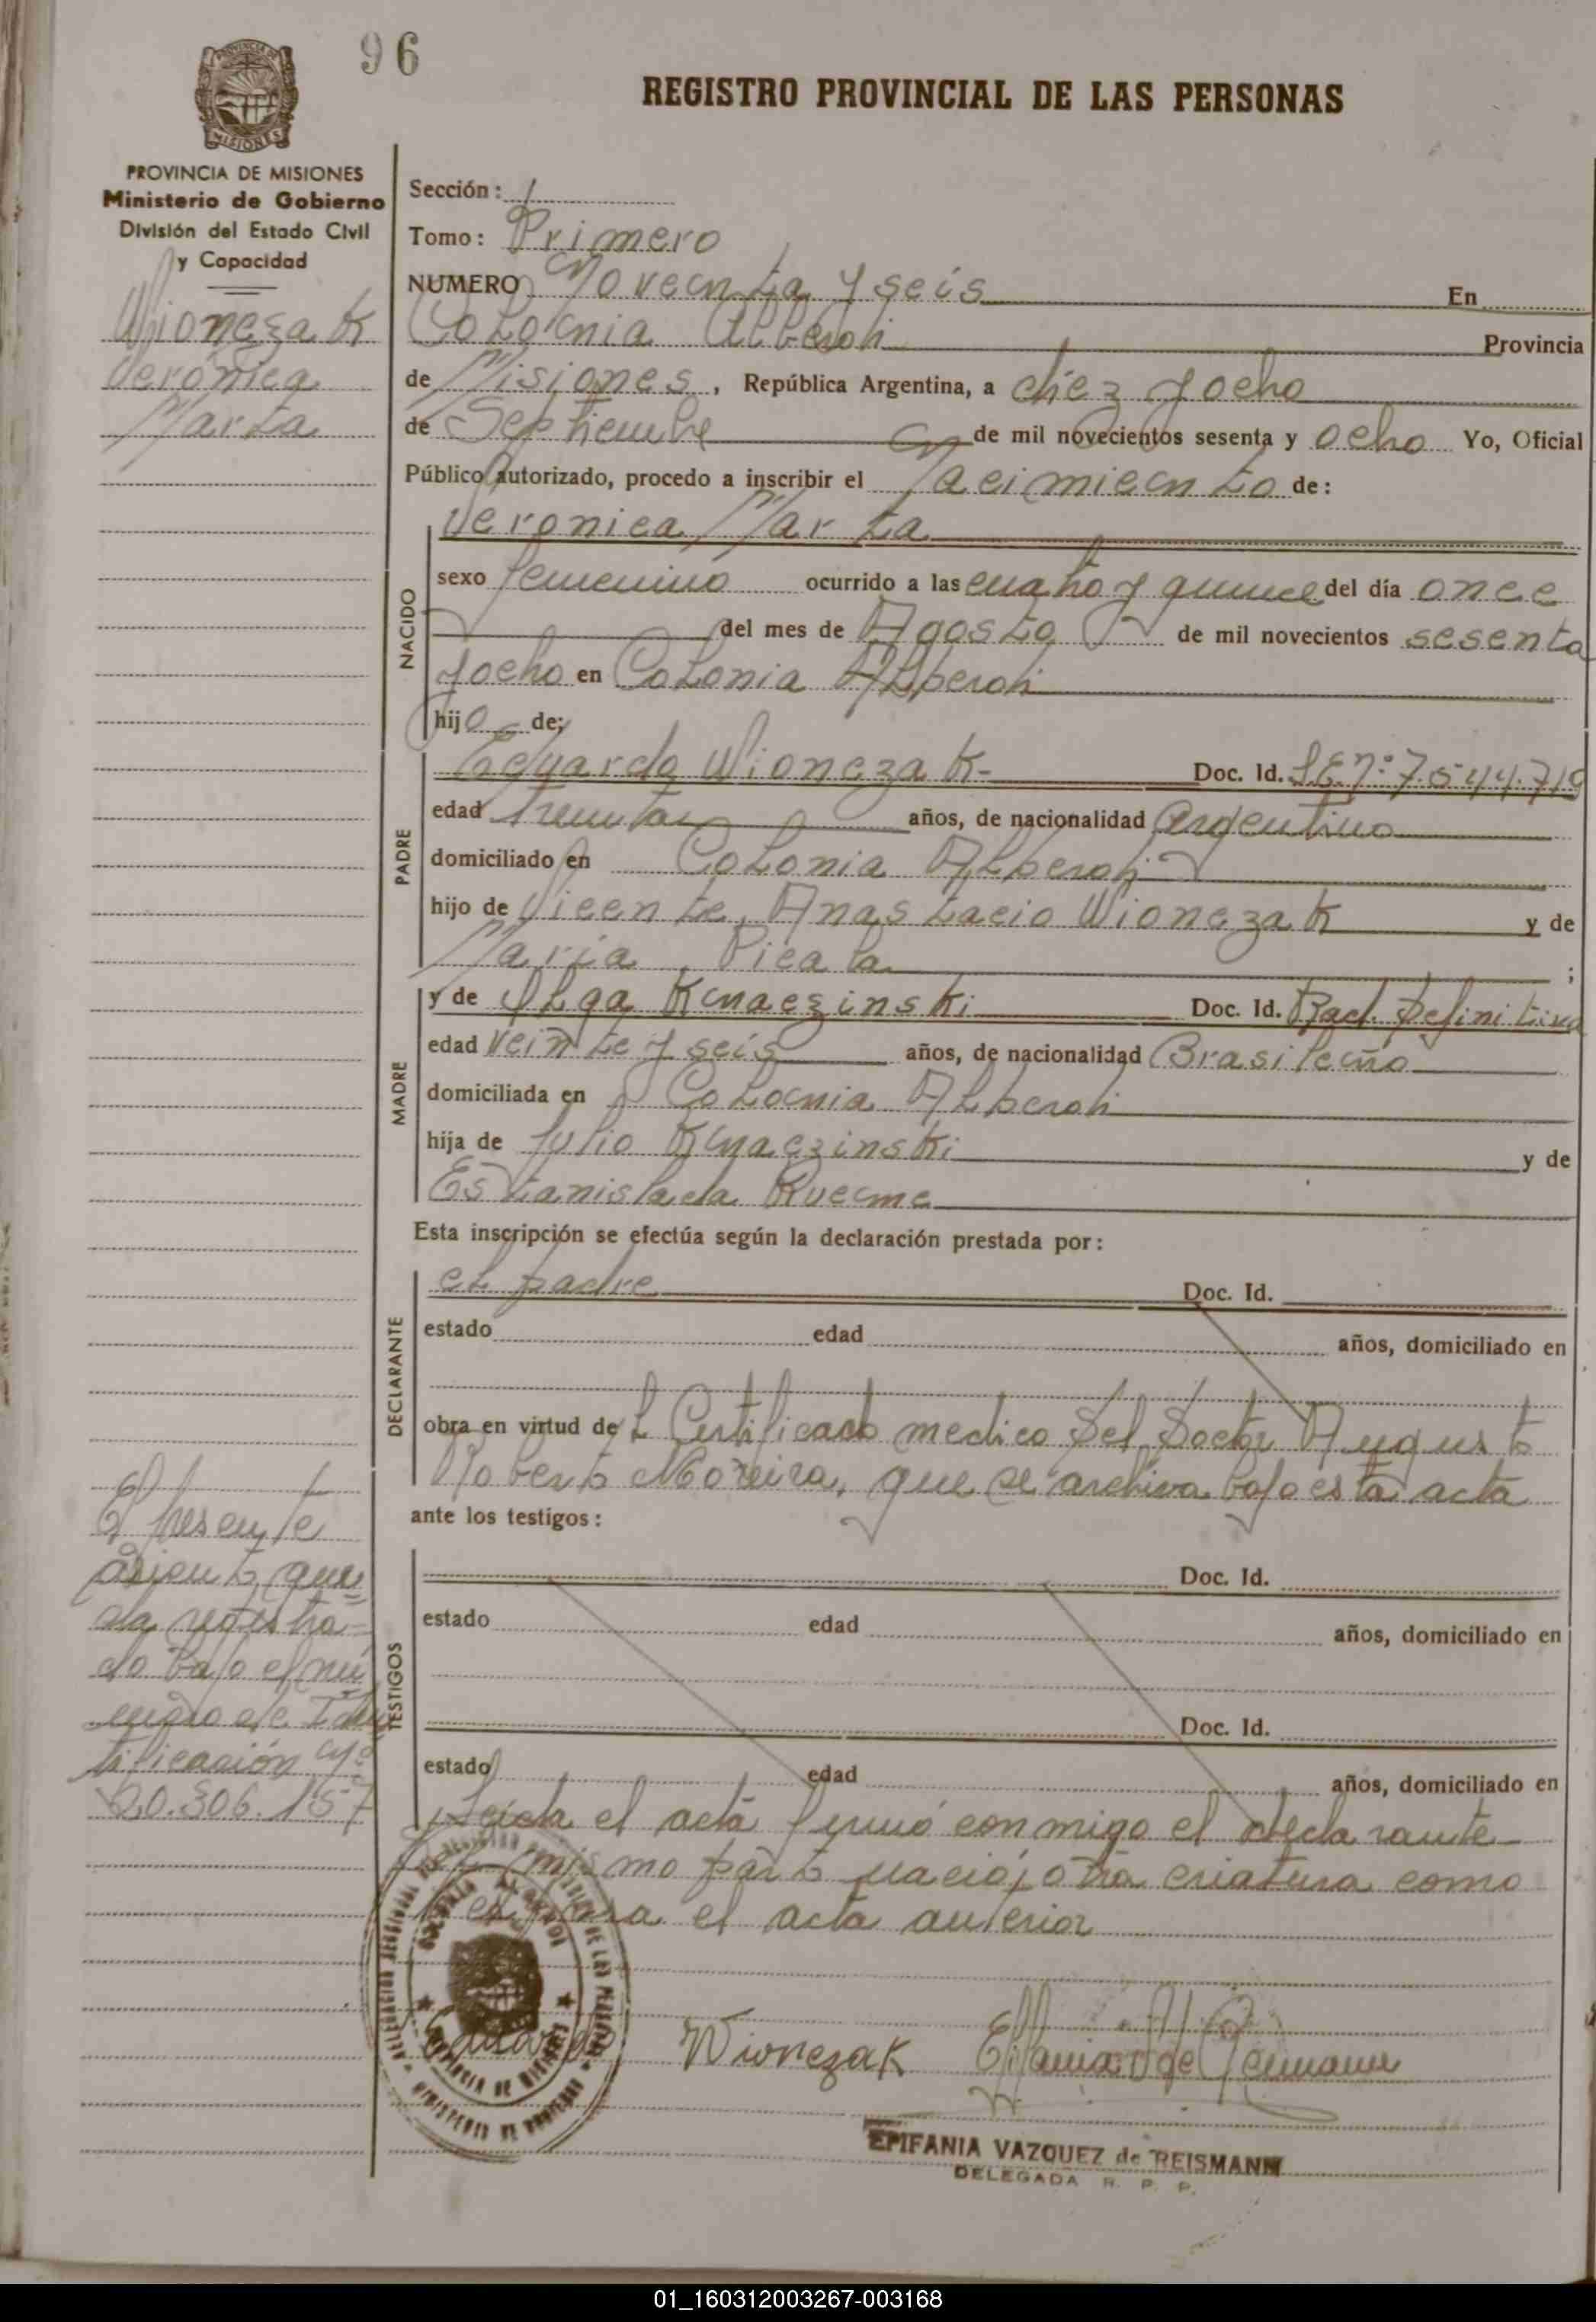 96
REGISTRO PROVINCIAL DE LAS PERSONAS
PROVINCIA DE MISIONES
Ministerio de Gobierno
División del Estado Civil
y Capacidad
Wionczak
Verónica
Marta
Sección:
Tomo: Primero
NUMERO Noventa y seis En
Colonia Alberdi Provincia
de Misiones, República Argentina, a diez y ocho
de Septiembre de mil novecientos sesenta y ocho Yo, Oficial
Público autorizado, procedo a inscribir el Nacimiento de:
Veronica Marta
NACIDO
sexo femenino ocurrido a las cuatro y quince del día once
del mes de Agosto de mil novecientos sesenta
y ocho en Colonia Alberdi
hijo de;
PADRE
Eduardo Wionczak- Doc. Id. L.E. Nº 7.544.719
edad treinta años, de nacionalidad Argentino
domiciliado en Colonia Alberdi
hijo de Vicente Anastacio Wionczak y de
María Picala ;
MADRE
y de Olga Knaczinski Doc. Id. Rad. Definitiva
edad veinte y seis años, de nacionalidad Brasileño
domiciliada en Colonia Alberdi
hija de Julio Knaczinski y de
Estanislada
Esta inscripción se efectúa según la declaración prestada por:
DECLARANTE
el padre Doc. Id.
estado edad años, domiciliado en
obra en virtud del Certificado medico Del Doctor Augusto
Roberto Moreira, que se archiva bajo esta acta
ante los testigos:
TESTIGOS
Doc. Id.
estado edad años, domiciliado en
Doc. Id.
estado edad años, domiciliado en
El presente
asiento que=
da registra=
do bajo el nú
mero de Iden
tificación Nº
20.306.157
Leida el acta firmó conmigo el declarante
mismo parto nació otra criatura como
el acta anterior
Eduardo Wionczak
EPIFANIA VAZQUEZ de REISMANN
DELEGADA R. P. P.
01_160312003267-003168